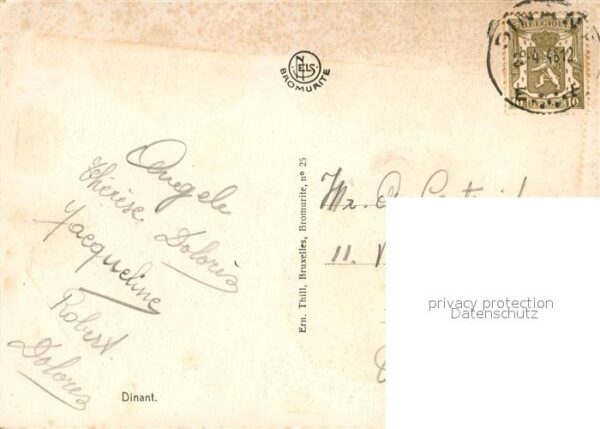 NELS
BROMURITE
BELGIQUE
10 10
Angele
Thérèse. Dolorès
Jacqueline
Robert.
Dolorès
Dinant.
Ern. Thill, Bruxelles, Bromurite, nº 25
Mr.
11.
privacy protection
Datenschutz